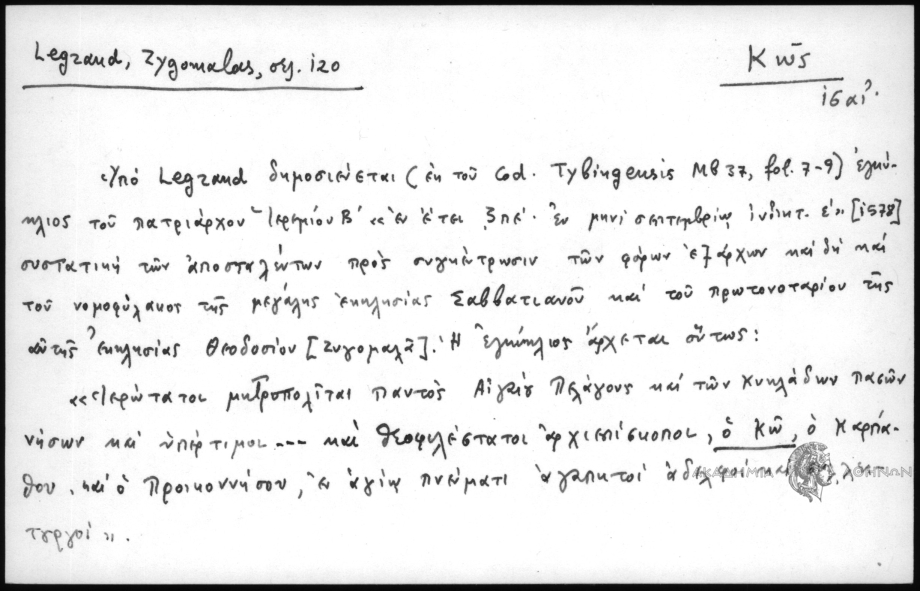 Legrand, Zygomalas, σελ. 120
Κῶς
ις αι'.
«Ὑπό Legrand δημοσιεύεται (ἐκ τοῦ Cod. Tybingensis Mb 37, fol. 7-9) ἐγκύ-
κλιος τοῦ πατριάρχου Ἱερεμίου Β' «ἐν ἔτει ζπζ'. ἐν μηνί σεπτεμβρίῳ ἰνδικτ. ε'» [1578]
συστατική τῶν ἀποσταλέντων πρός συγκέντρωσιν τῶν φόρων ἐξάρχων καί δή καί
τοῦ νομοφύλακος τῆς μεγάλης ἐκκλησίας Σαββατιανοῦ καί τοῦ πρωτονοταρίου τῆς
αὐτῆς ἐκκλησίας Θεοδοσίου [Ζυγομαλᾶ]. Ἡ ἐγκύκλιος ἄρχεται οὕτως:
««Ἱερώτατοι μητροπολῖται παντός Αἰγαίου Πελάγους καί τῶν Κυκλάδων πασῶν
νήσων καί ὑπέρτιμοι --- καί θεοφιλέστατοι ἀρχιεπίσκοποι, ὁ Κῶ, ὁ Καρπά-
θου, καί ὁ Προικοννήσου, ἐν ἁγίῳ πνεύματι ἀγαπητοί ἀδελφοί καί συλλει-
τυργοί».
ΑΚΑΔΗΜΙΑ ΑΘΗΝΩΝ